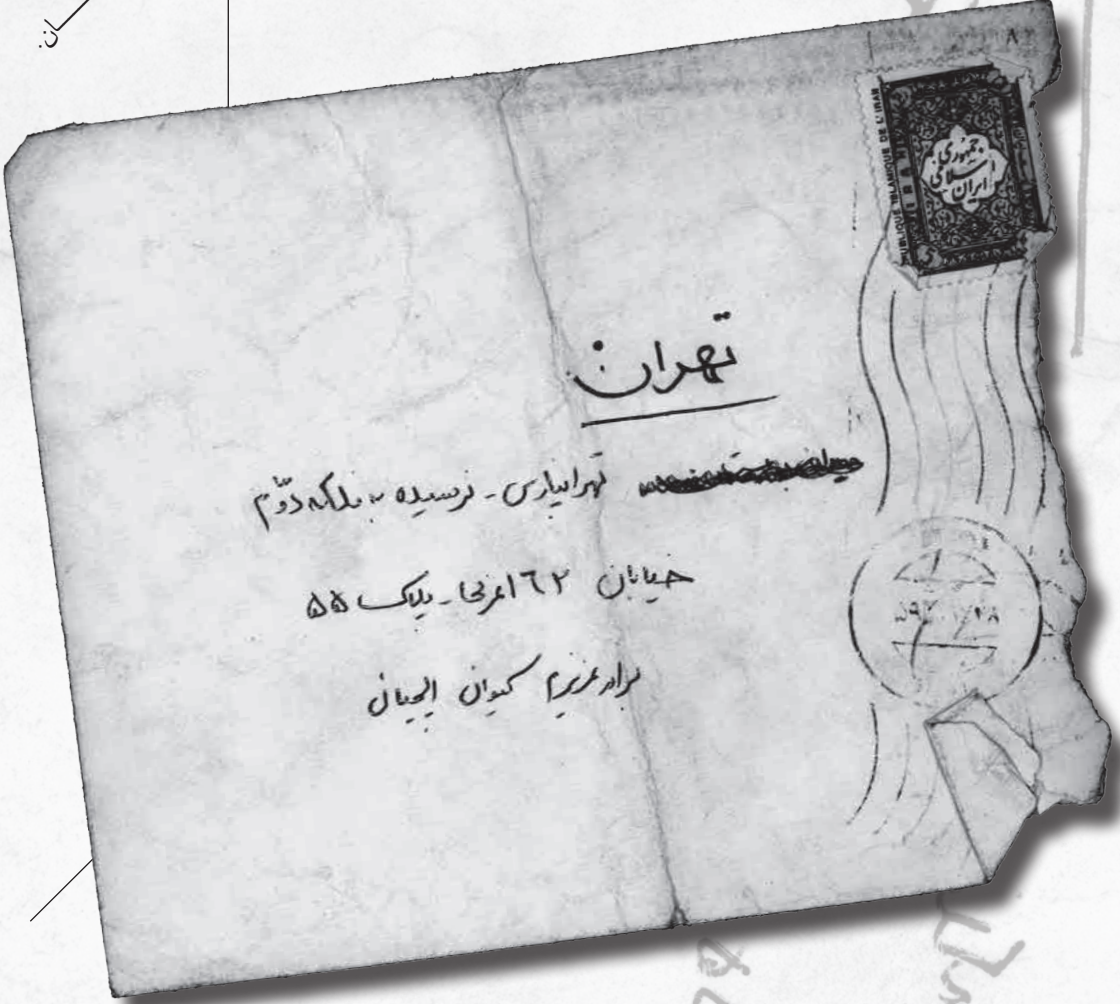 ان.
RÉPUBLIQUE ISLAMIQUE DE L'IRAN
IRAN
جمهوری
اسلامی
ایران
تهران
تهرانپارس - نرسیده به فلکه دوّم
خیابان ۱۶۲ غربی - پلاک ۵۵
برادر عزیزم کیوان